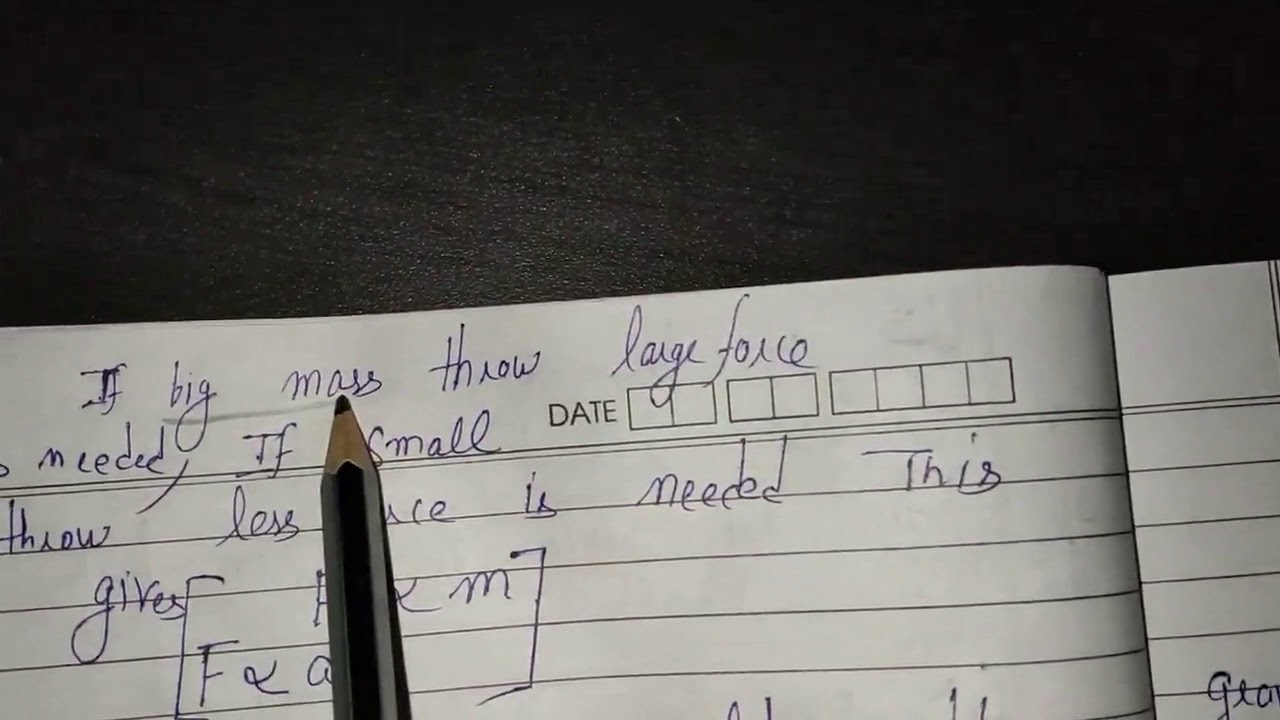 If big mass throw large force
DATE
needed, If small
throw less is needed This
gives m
F ∝ a